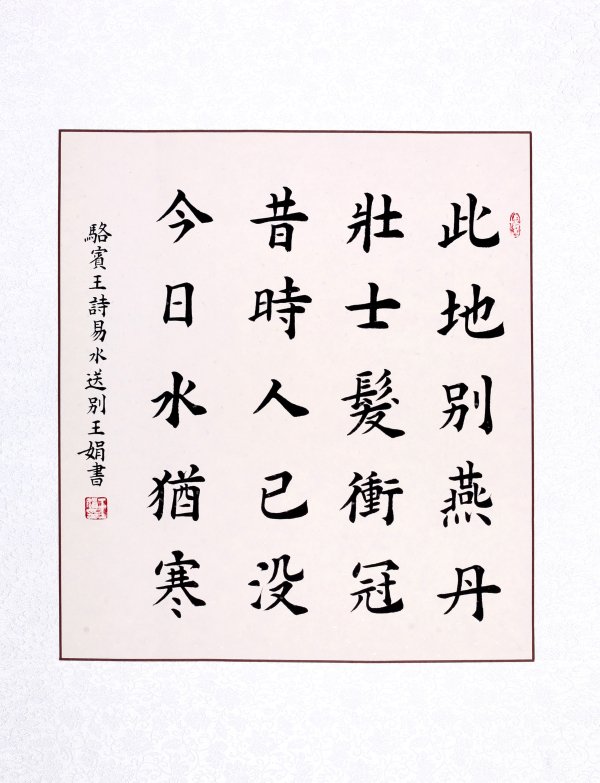 此地别燕丹
壯士髮衝冠
昔時人已没
今日水猶寒
駱賓王詩易水送别王娟書